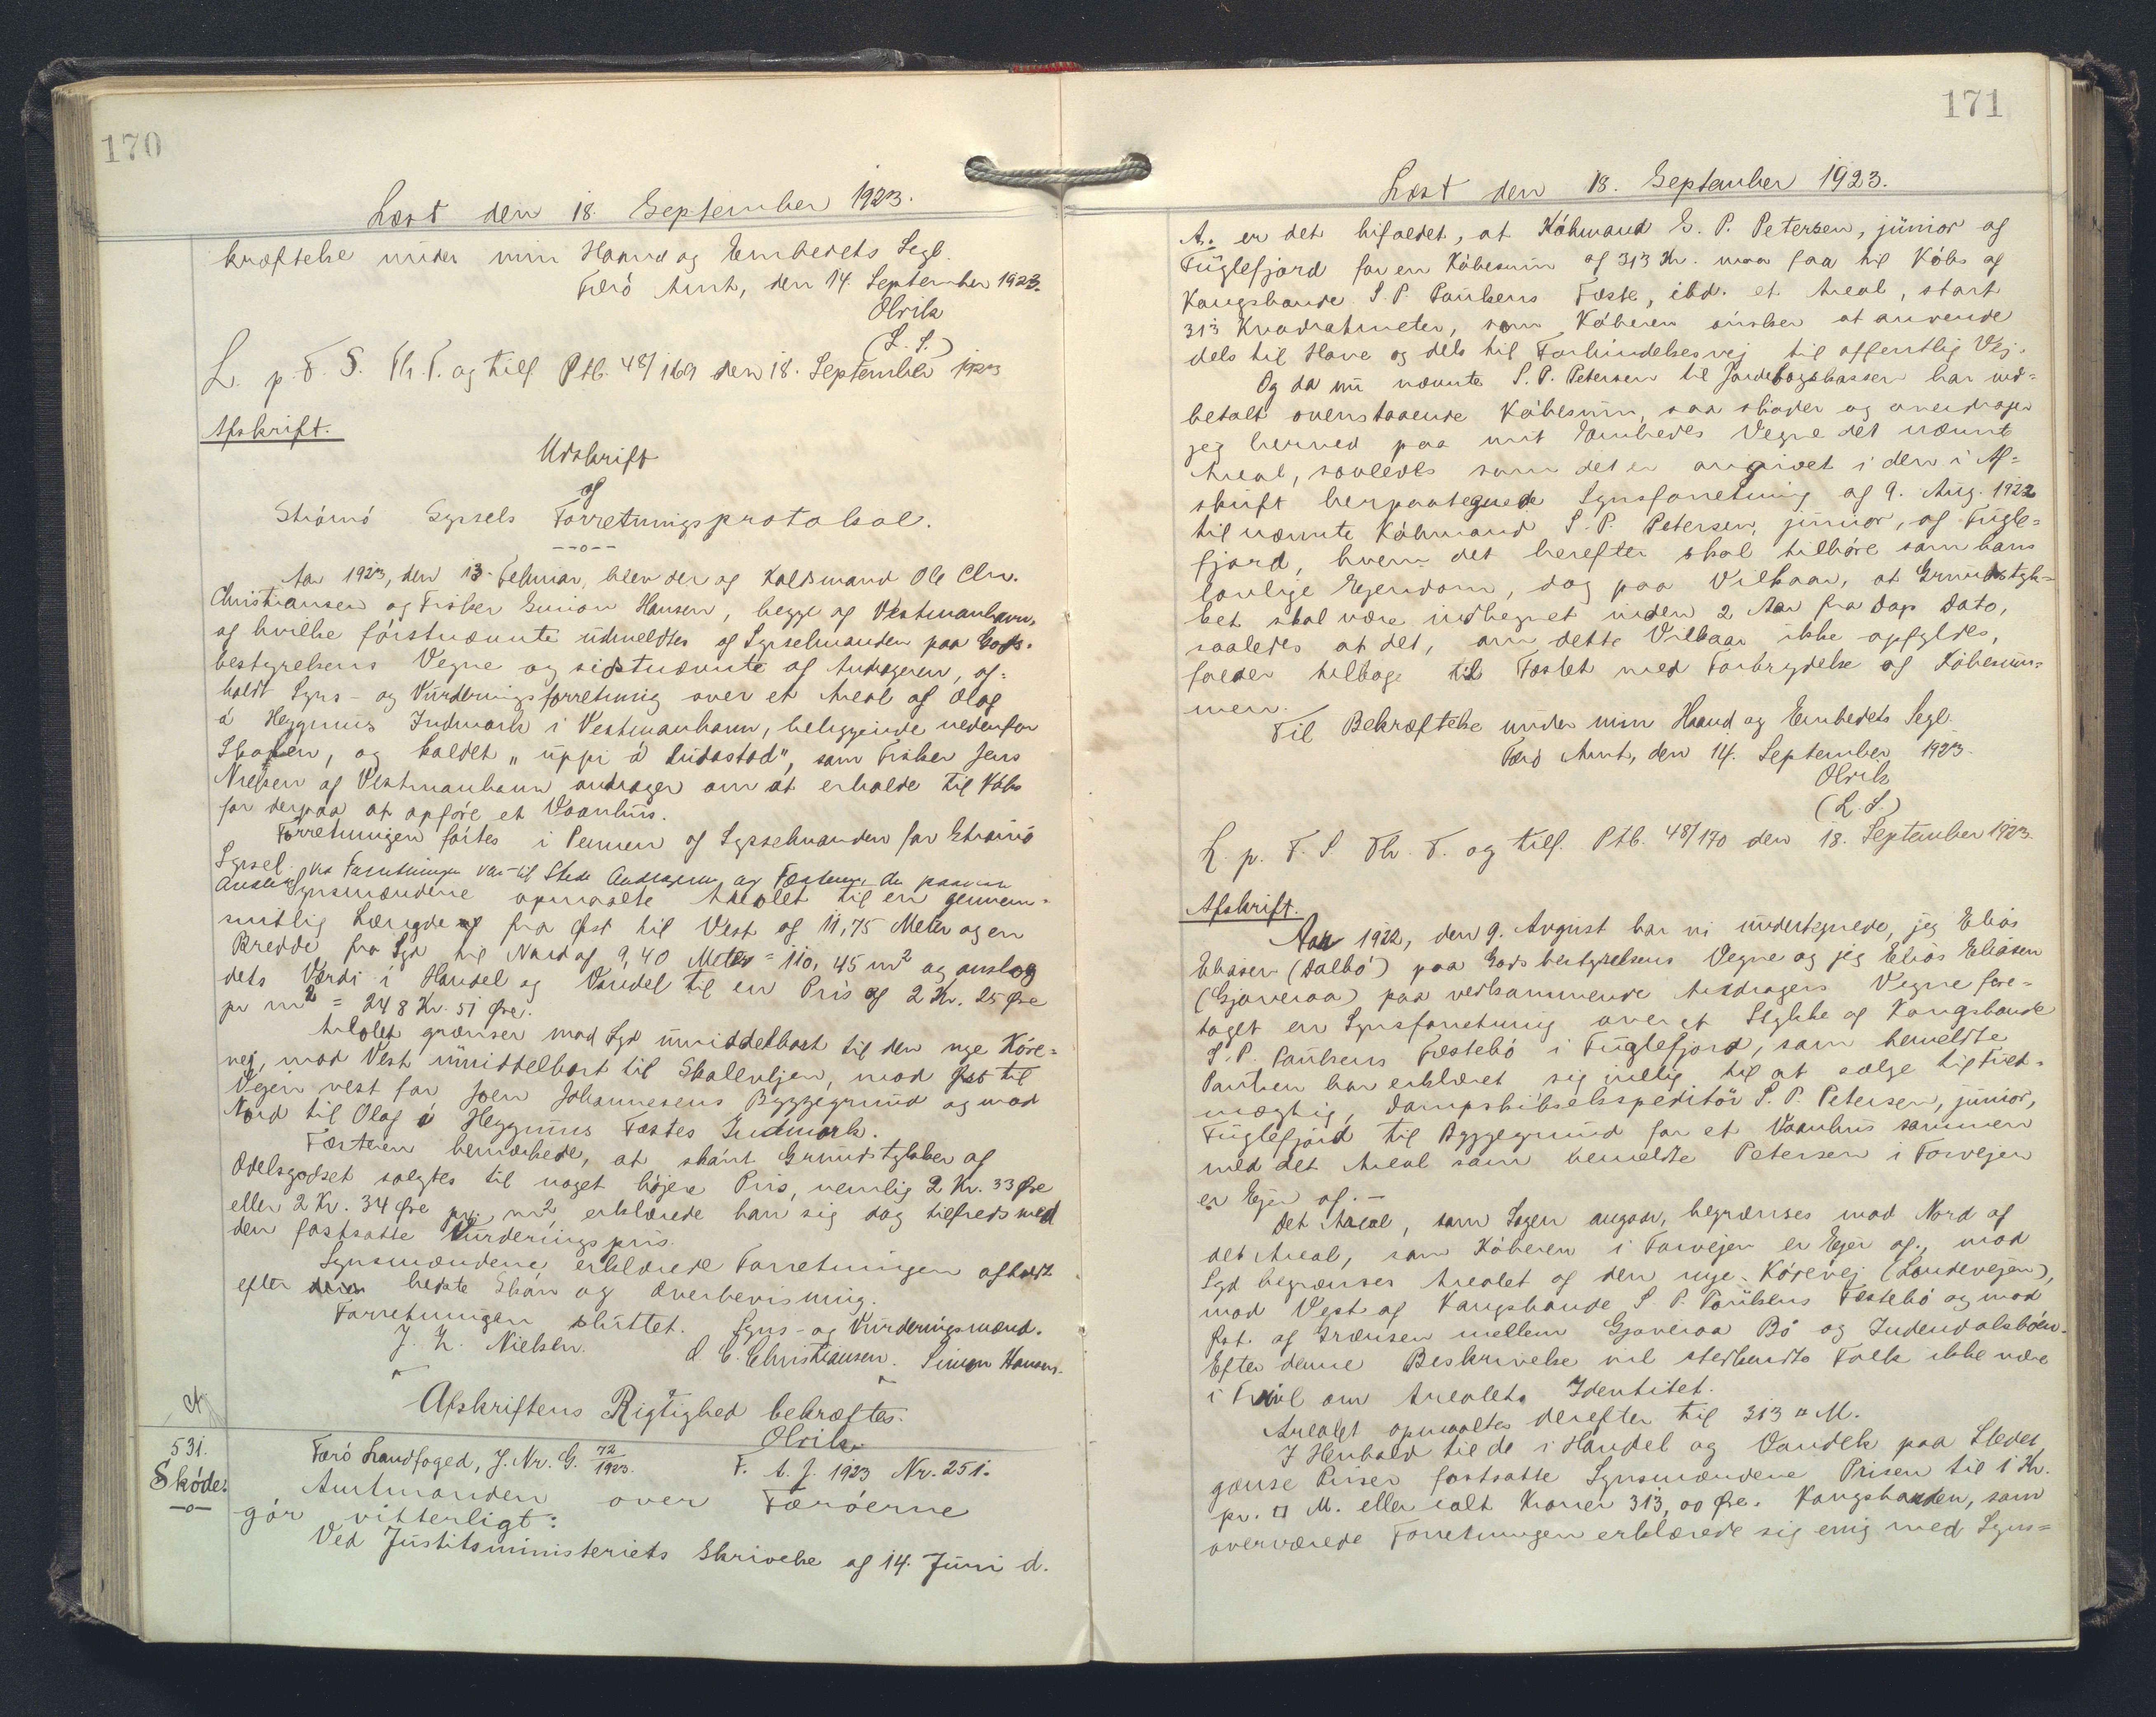 170
Læst den 18. September 1923.
kræftelse under min Haand og Embedets Segl.
Færö Amt, den 14. September 1923.
Olrik
(L. S.)
L. p. F. S. Th. T. og tilf Ptb. 48/169 den 18. September 1923
Afskrift.
Udskrift
af
Strömö Syssels Forretningsprotokol.
--o--
Aar 1923, den 13. Februar, blev der af Ole Chr.
Christiansen og Fisker Simon Hansen, begge af Vestmanhavn,
af hvilke förstnævnte udmeldtes af Sysselmanden paa Gods-
bestyrelsens Vegne og sidstnævnte af Andrageren, af-
holdt Syns- og Vurderingsforretning over et Areal af Olaf
á Heygnum Indmark i Vestmanhavn, beliggende nedenfor
Skolen, og kaldet "uppi á", som Fisker Jens
Nielsen af Vestmanhavn andrager om at erholde til Köbs
for derpaa at opföre et Vaanhus.
Forretningen förtes i Pennen af Sysselmanden for Strömö
Syssel. Ved Forretningen var til Stede Andrageren og Fæsteren, der paaviste
Arealet. Synsmændene opmaalte Arealet til en gennem-
snitlig Længde af fra Öst til Vest af 11,75 Meter og en
Bredde fra Syd til Nord af 9,40 Meter = 110,45 m² og anslog
dets Værdi i Handel og Vandel til en Pris af 2 Kr. 25 Øre
pr m² = 248 Kr. 51 Øre.
Arealet grænser mod Syd umiddelbart til den nye Köre-
vej, mod Vest umiddelbart til Skolevejen, mod Øst til
Vejen vest for Joen Johannesens Byggegrund og mod
Nord til Olaf á Heygnums Fæstes Indmark.
Fæsteren bemærkede, at skönt Grundstykker af
Odelsgodset solgtes til noget højere Pris, nemlig 2 Kr. 33 Øre
eller 2 Kr. 34 Øre pr. m², erklærede han sig dog tilfreds med
den fastsatte Vurderingspris.
Synsmændene erklærede Forretningen afholdt
efter bedste Skön og Overbevisning.
Forretningen sluttet. Syns- og Vurderingsmænd.
J. H. Nielsen. O. C. Christiansen. Simon Hansen.
Afskriftens Rigtighed bekræftes.
Olrik
531.
Skóde.
--o--
Færó Landfoged, J. Nr. G. 72/1923. F. A. J. 1923 Nr. 251.
Amtmanden over Færöerne
gör vitterligt:
Ved Justitsministeriets Skrivelse af 14. Juni d.
171
Læst den 18. September 1923.
A. er det bifaldet, at Köbmand S. P. Petersen, junior af
Fuglefjord for en Köbesum af 313 Kr. maa faa til Köbs af
Kongsbonde S. P. Poulsens Fæste, ibd. et Areal, stort
313 Kvadratmeter, som Köberen önsker at anvende
dels til Have og dels til Forbindelsesvej til offentlig Vej.
Og da nu nævnte S. P. Petersen til Jordebogskassen har ind-
betalt ovenstaaende Köbesum, saa sköder og overdrager
jeg herved paa mit Embedes Vegne det nævnte
Areal, saaledes som det er angivet i den i Af-
skrift herpaategnede Synsforretning af 9. Aug. 1922
til nævnte Köbmand S. P. Petersen, junior, af Fugle-
fjord, hvem det herefter skal tilhöre som hans
lovlige Ejendom, dog paa Vilkaar, at Grundstyk-
ket skal være indhegnet inden 2 Aar fra Dags Dato,
saaledes at det, om dette Vilkaar ikke opfyldes,
falder tilbage til Fæstet med Forbrydelse af Köbesum-
men.
Til Bekræftelse under min Haand og Embedets Segl.
Færö Amt, den 14. September 1923.
Olrik
(L. S.)
L. p. F. S. Th. T. og tilf. Ptb. 48/170 den 18. September 1923.
Afskrift.
Aar 1922, den 9. August har vi undertegnede, jeg Elias
Eliasen (Dalbö) paa Godsbestyrelsens Vegne og jeg Elias Eliasen
(Gjoveraa) paa vedkommende Andragers Vegne fore-
taget en Synsforretning over et Stykke af Kongsbonde
S. P. Poulsens Fæstebö i Fuglefjord, som bemeldte
Poulsen har erklæret sig villig til at sælge til fuld-
mægtig, Dampskibsekspeditör S. P. Petersen, junior,
Fuglefjord til Byggegrund for et Vaanhus sammen
med det Areal som bemeldte Petersen i Forvejen
er Ejer af. —
Det Areal, som Sagen angaar, begrænses mod Nord af
det Areal, som Köberen i Forvejen er Ejer af, mod
Syd begrænses Arealet af den nye Körevej (Landevejen),
mod Vest af Kongsbonde S. P. Poulsens Fæstebö og mod
Øst. af Grænsen mellem Gjoveraa Bö og Indendalsböen.
Efter denne Beskrivelse vil stedkendte Folk ikke være
i Tvivl om Arealets Identitet.
Arealet opmaaltes derefter til 313 □ M.
I Henhold til de i Handel og Vandel paa Stedet
gænse Priser fastsatte Synsmændene Prisen til 1 Kr.
pr. □ M. eller ialt Kroner 313,00 Øre. Kongsbonden, som
overværede Forretningen erklærede sig enig med Syns=